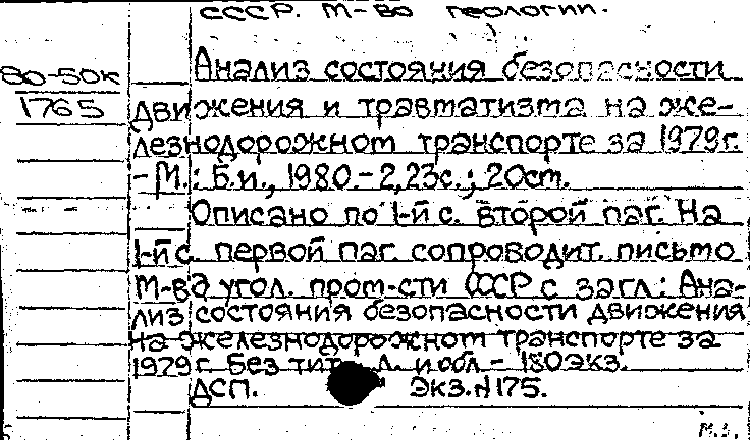 СССР. М-во геологии.
80-50к
Анализ состояния безопасности
1765
движения и травматизма на же-
лезнодорожном транспорте за 1979г.
-М.: Б.и., 1980.-2,23с.; 20см.
Описано по 1-й с. второй паг. На
1-й с. первой паг. сопроводит. письмо
М-ва угол. пром-сти СССР с загл.: Ана-
лиз состояния безопасности движения
на железнодорожном транспорте за
1979г. Без тит. л. и обл - 180экз.
ДСП. Экз.N175.